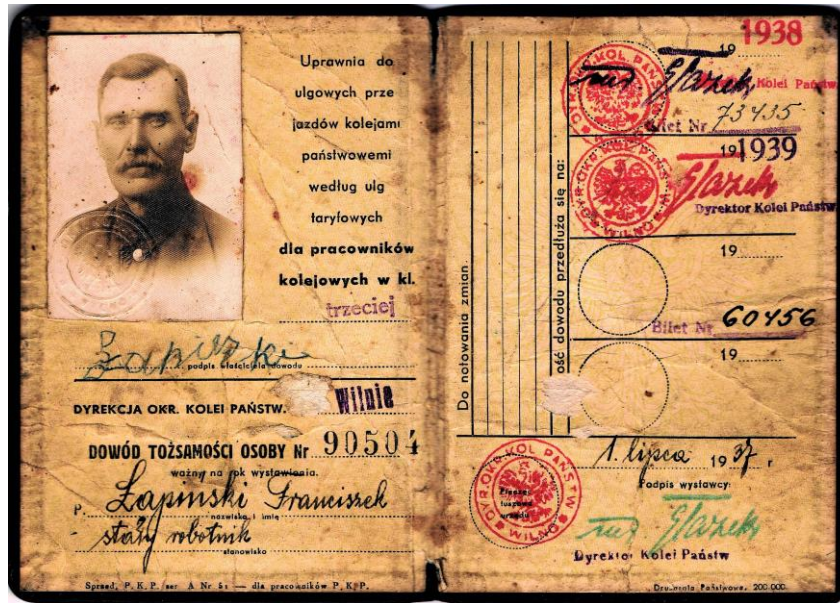 Uprawnia do
ulgowych prze
jazdów kolejami
państwowemi
według ulg
taryfowych
dla pracowników
kolejowych w kl.
trzeciej
podpis właściciela dowodu
DYREKCJA OKR. KOLEI PAŃSTW. Wilnie
DOWÓD TOŻSAMOŚCI OSOBY Nr 90504
ważny na rok wystawienia.
P. Łapinski Franciszek
nazwisko i imię
stały robotnik
stanowisko
Sprzed. P. K. P. ser A Nr 51 — dla pracowników P. K. P.
Do notowania zmian
ość dowodu przedłuża się na:
19 1938
Glazek Kolei Państw.
Bilet Nr 73435
19 1939
Glazek
Dyrektor Kolei Państw.
DYR. OKR. KOL. PAŃSTW. WILNO
19
Bilet Nr 60456
19
1. lipca 1937 r
Podpis wystawcy:
Glazek
Dyrektor Kolei Państw
DYR. OKR. KOL. PAŃSTW. WILNO
Drukarnia Państwowa. 200.000.